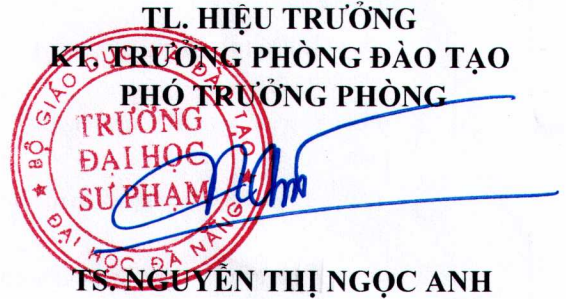 TL. HIỆU TRƯỞNG
KT. TRƯỞNG PHÒNG ĐÀO TẠO
PHÓ TRƯỞNG PHÒNG
BỘ GIÁO DỤC VÀ ĐÀO TẠO
TRƯỜNG
ĐẠI HỌC
SƯ PHẠM
ĐẠI HỌC ĐÀ NẴNG
TS. NGUYỄN THỊ NGỌC ANH